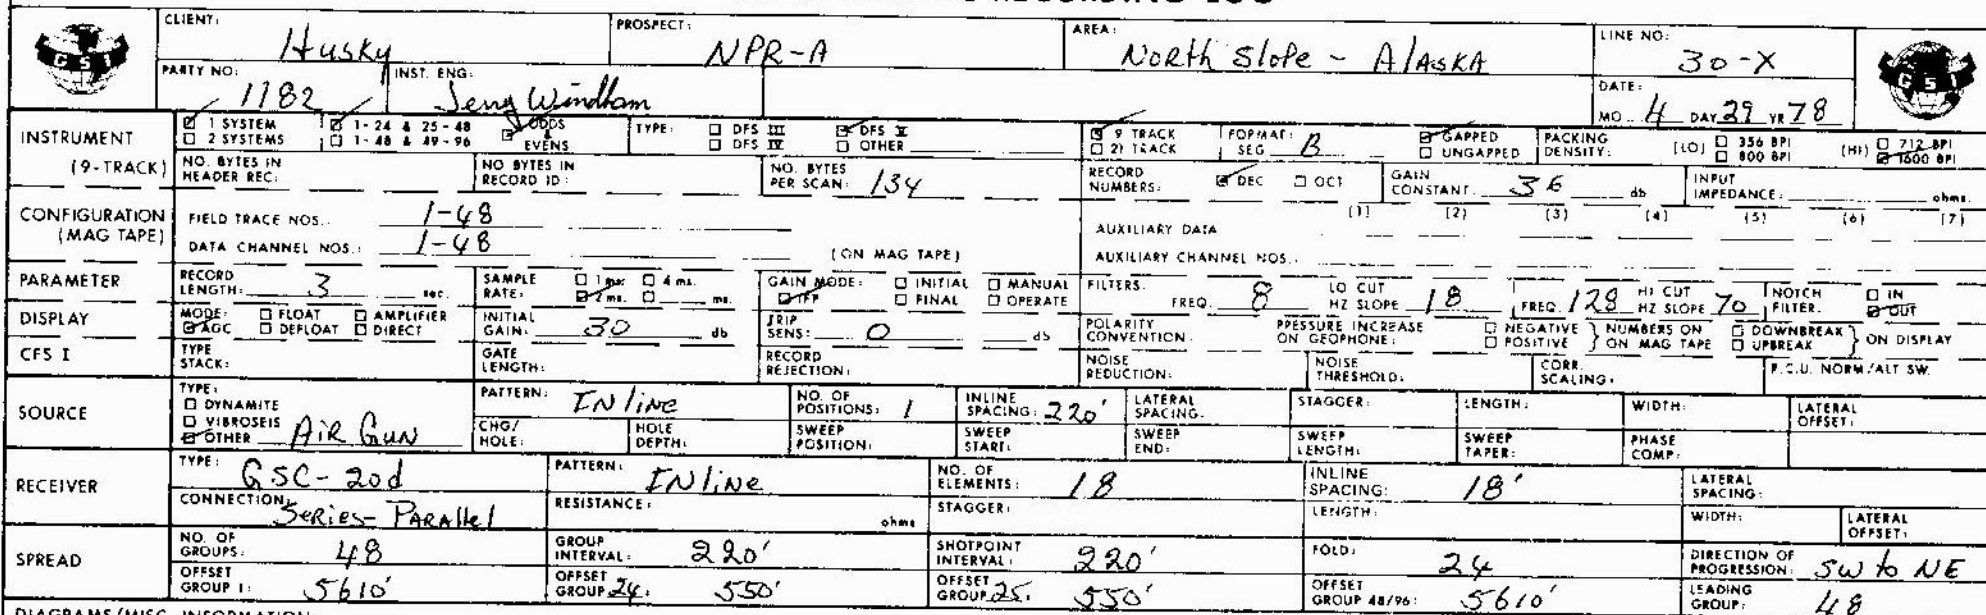 CLIENT: Husky PROSPECT: NPR-A AREA: North Slope - Alaska LINE NO: 30-X
GSI
PARTY NO: 1182 INST. ENG: Jerry Windham DATE: MO. 4 DAY 29 YR 78
GSI
INSTRUMENT (9-TRACK) 1 SYSTEM 1-24 & 25-48 ODDS & EVENS TYPE: DFS III DFS V 9 TRACK FORMAT: SEG B GAPPED PACKING DENSITY: [LO] 356 BPI (HI) 712 BPI
2 SYSTEMS 1-48 & 49-96 DFS IV OTHER 21 TRACK UNGAPPED 800 BPI 1600 BPI
NO. BYTES IN HEADER REC: NO BYTES IN RECORD ID: NO. BYTES PER SCAN: 134 RECORD NUMBERS: DEC OCT GAIN CONSTANT 36 db INPUT IMPEDANCE: ohms.
CONFIGURATION (MAG TAPE) FIELD TRACE NOS.: 1-48 AUXILIARY DATA [1] [2] (3) (4) (5) (6) (7)
DATA CHANNEL NOS.: 1-48 (ON MAG TAPE) AUXILIARY CHANNEL NOS.:
PARAMETER RECORD LENGTH: 3 sec. SAMPLE RATE: 1 ms. 4 ms. 2 ms. ms. GAIN MODE: INITIAL MANUAL IFP FINAL OPERATE FILTERS. FREQ. 8 LO CUT HZ SLOPE 18 FREQ. 128 HI CUT HZ SLOPE 70 NOTCH FILTER. IN OUT
DISPLAY MODE: FLOAT AMPLIFIER AGC DEFLOAT DIRECT INITIAL GAIN: 30 db TRIP SENS: 0 db POLARITY CONVENTION. PRESSURE INCREASE ON GEOPHONE: NEGATIVE POSITIVE } NUMBERS ON MAG TAPE DOWNBREAK UPBREAK } ON DISPLAY
CFS I TYPE STACK: GATE LENGTH: RECORD REJECTION: NOISE REDUCTION: NOISE THRESHOLD: CORR. SCALING: P.C.U. NORM/ALT SW.
SOURCE TYPE: DYNAMITE VIBROSEIS OTHER Air Gun PATTERN: INline NO. OF POSITIONS: 1 INLINE SPACING: 220' LATERAL SPACING. STAGGER: LENGTH: WIDTH: LATERAL OFFSET:
CHG/HOLE: HOLE DEPTH: SWEEP POSITION: SWEEP START: SWEEP END: SWEEP LENGTH: SWEEP TAPER: PHASE COMP:
RECEIVER TYPE: GSC-20d PATTERN: INline NO. OF ELEMENTS: 18 INLINE SPACING: 18' LATERAL SPACING:
CONNECTION: Series-Parallel RESISTANCE: ohms STAGGER: LENGTH: WIDTH: LATERAL OFFSET:
SPREAD NO. OF GROUPS: 48 GROUP INTERVAL: 220' SHOTPOINT INTERVAL: 220' FOLD: 24 DIRECTION OF PROGRESSION: SW to NE
OFFSET GROUP 1: 5610' OFFSET GROUP 24: 550' OFFSET GROUP 25: 550' OFFSET GROUP 48/96: 5610' LEADING GROUP: 48